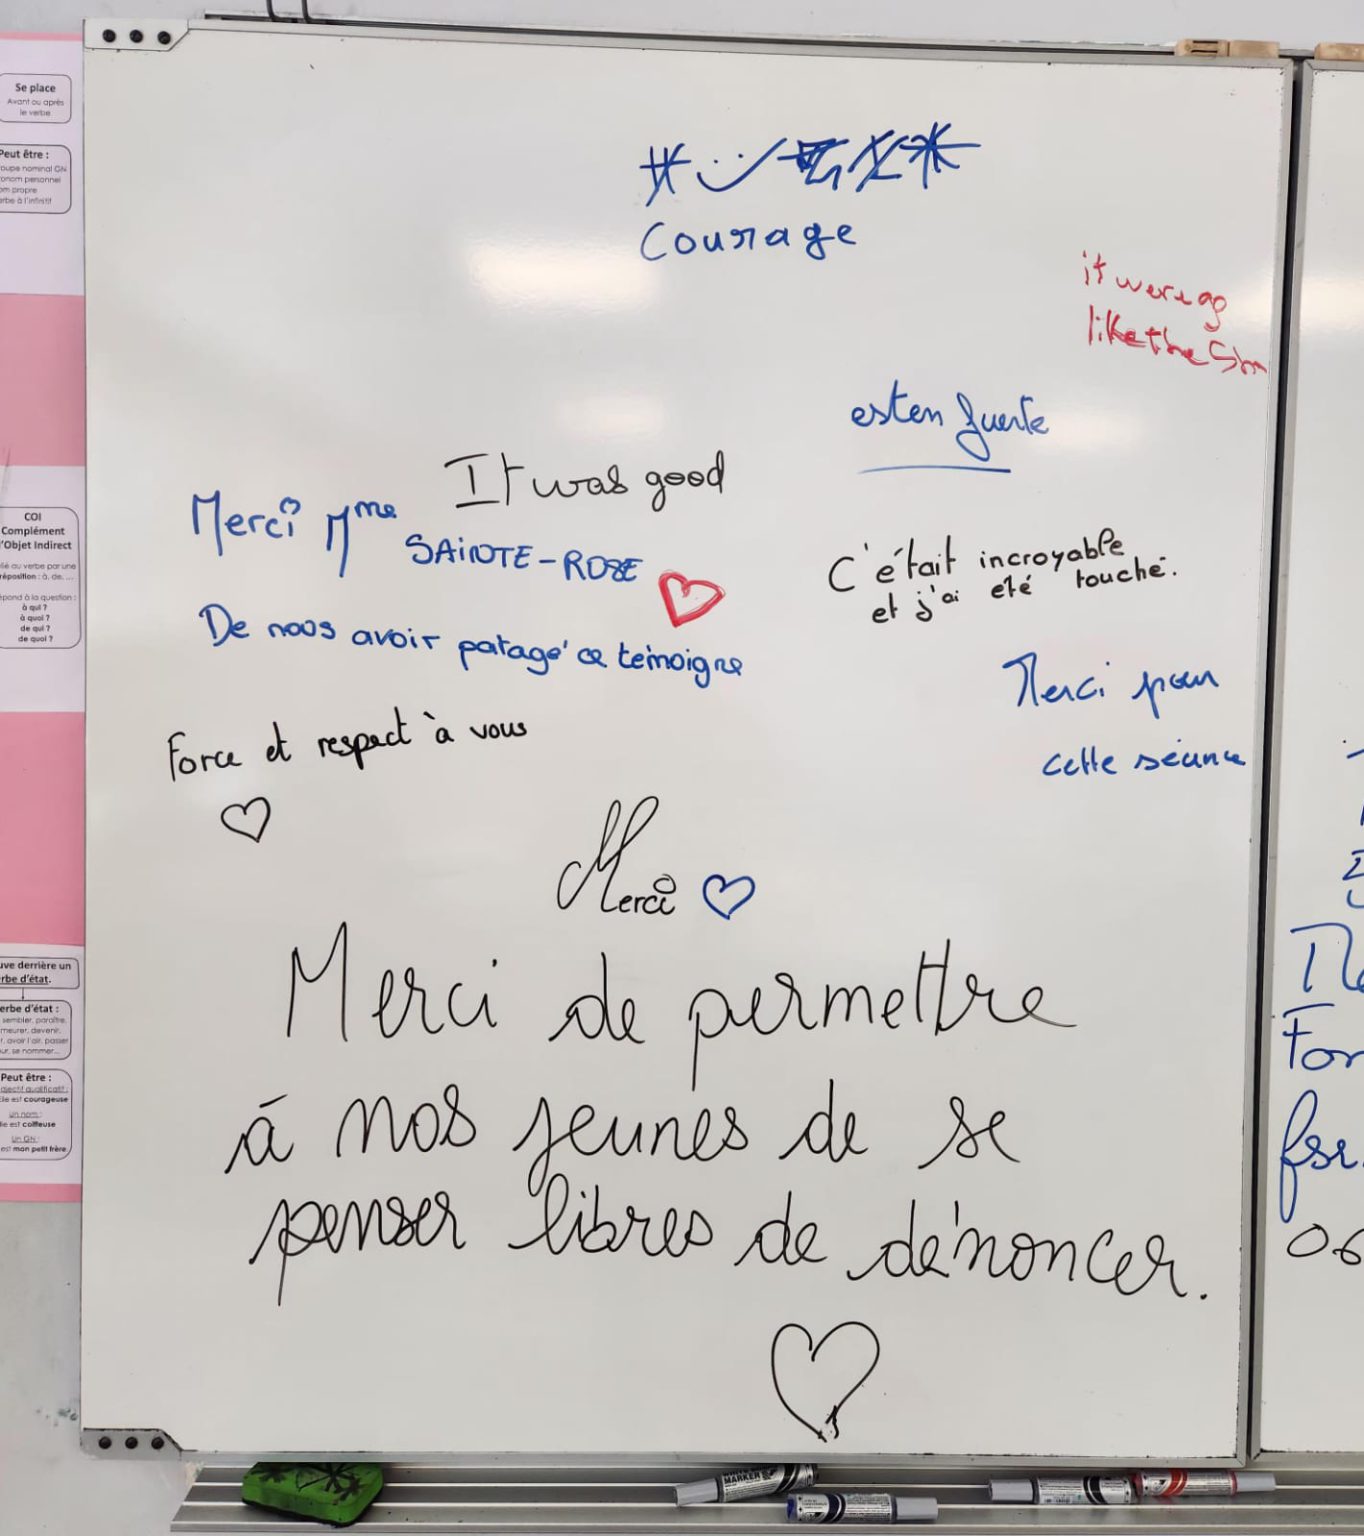 Se place
Avant ou après
le verbe
Peut être :
nominal GN
personnel
propre
à l'infinitif
COI
Complément
d'Objet Indirect
au verbe par une
préposition : à, de, ...
répond à la question :
à qui ?
à quoi ?
de qui ?
de quoi ?
derrière un
verbe d'état.
verbe d'état :
sembler, paraître,
demeurer, devenir,
avoir l'air, passer
pour, se nommer...
Peut être :
adjectif qualificatif :
Elle est courageuse
Un nom :
Elle est coiffeuse
Un GN :
est mon petit frère
Courage
it were go
like the
esten fuerte
It was good
Merci Mme
SAiNTE-ROSE
De nous avoir patagé ce témoigne
C'était incroyable
et j'ai été touché.
Merci pour
cette séance
Force et respect à vous
Merci
Merci de permettre
à nos jeunes de se
penser libres de dénoncer.
MARKER
06